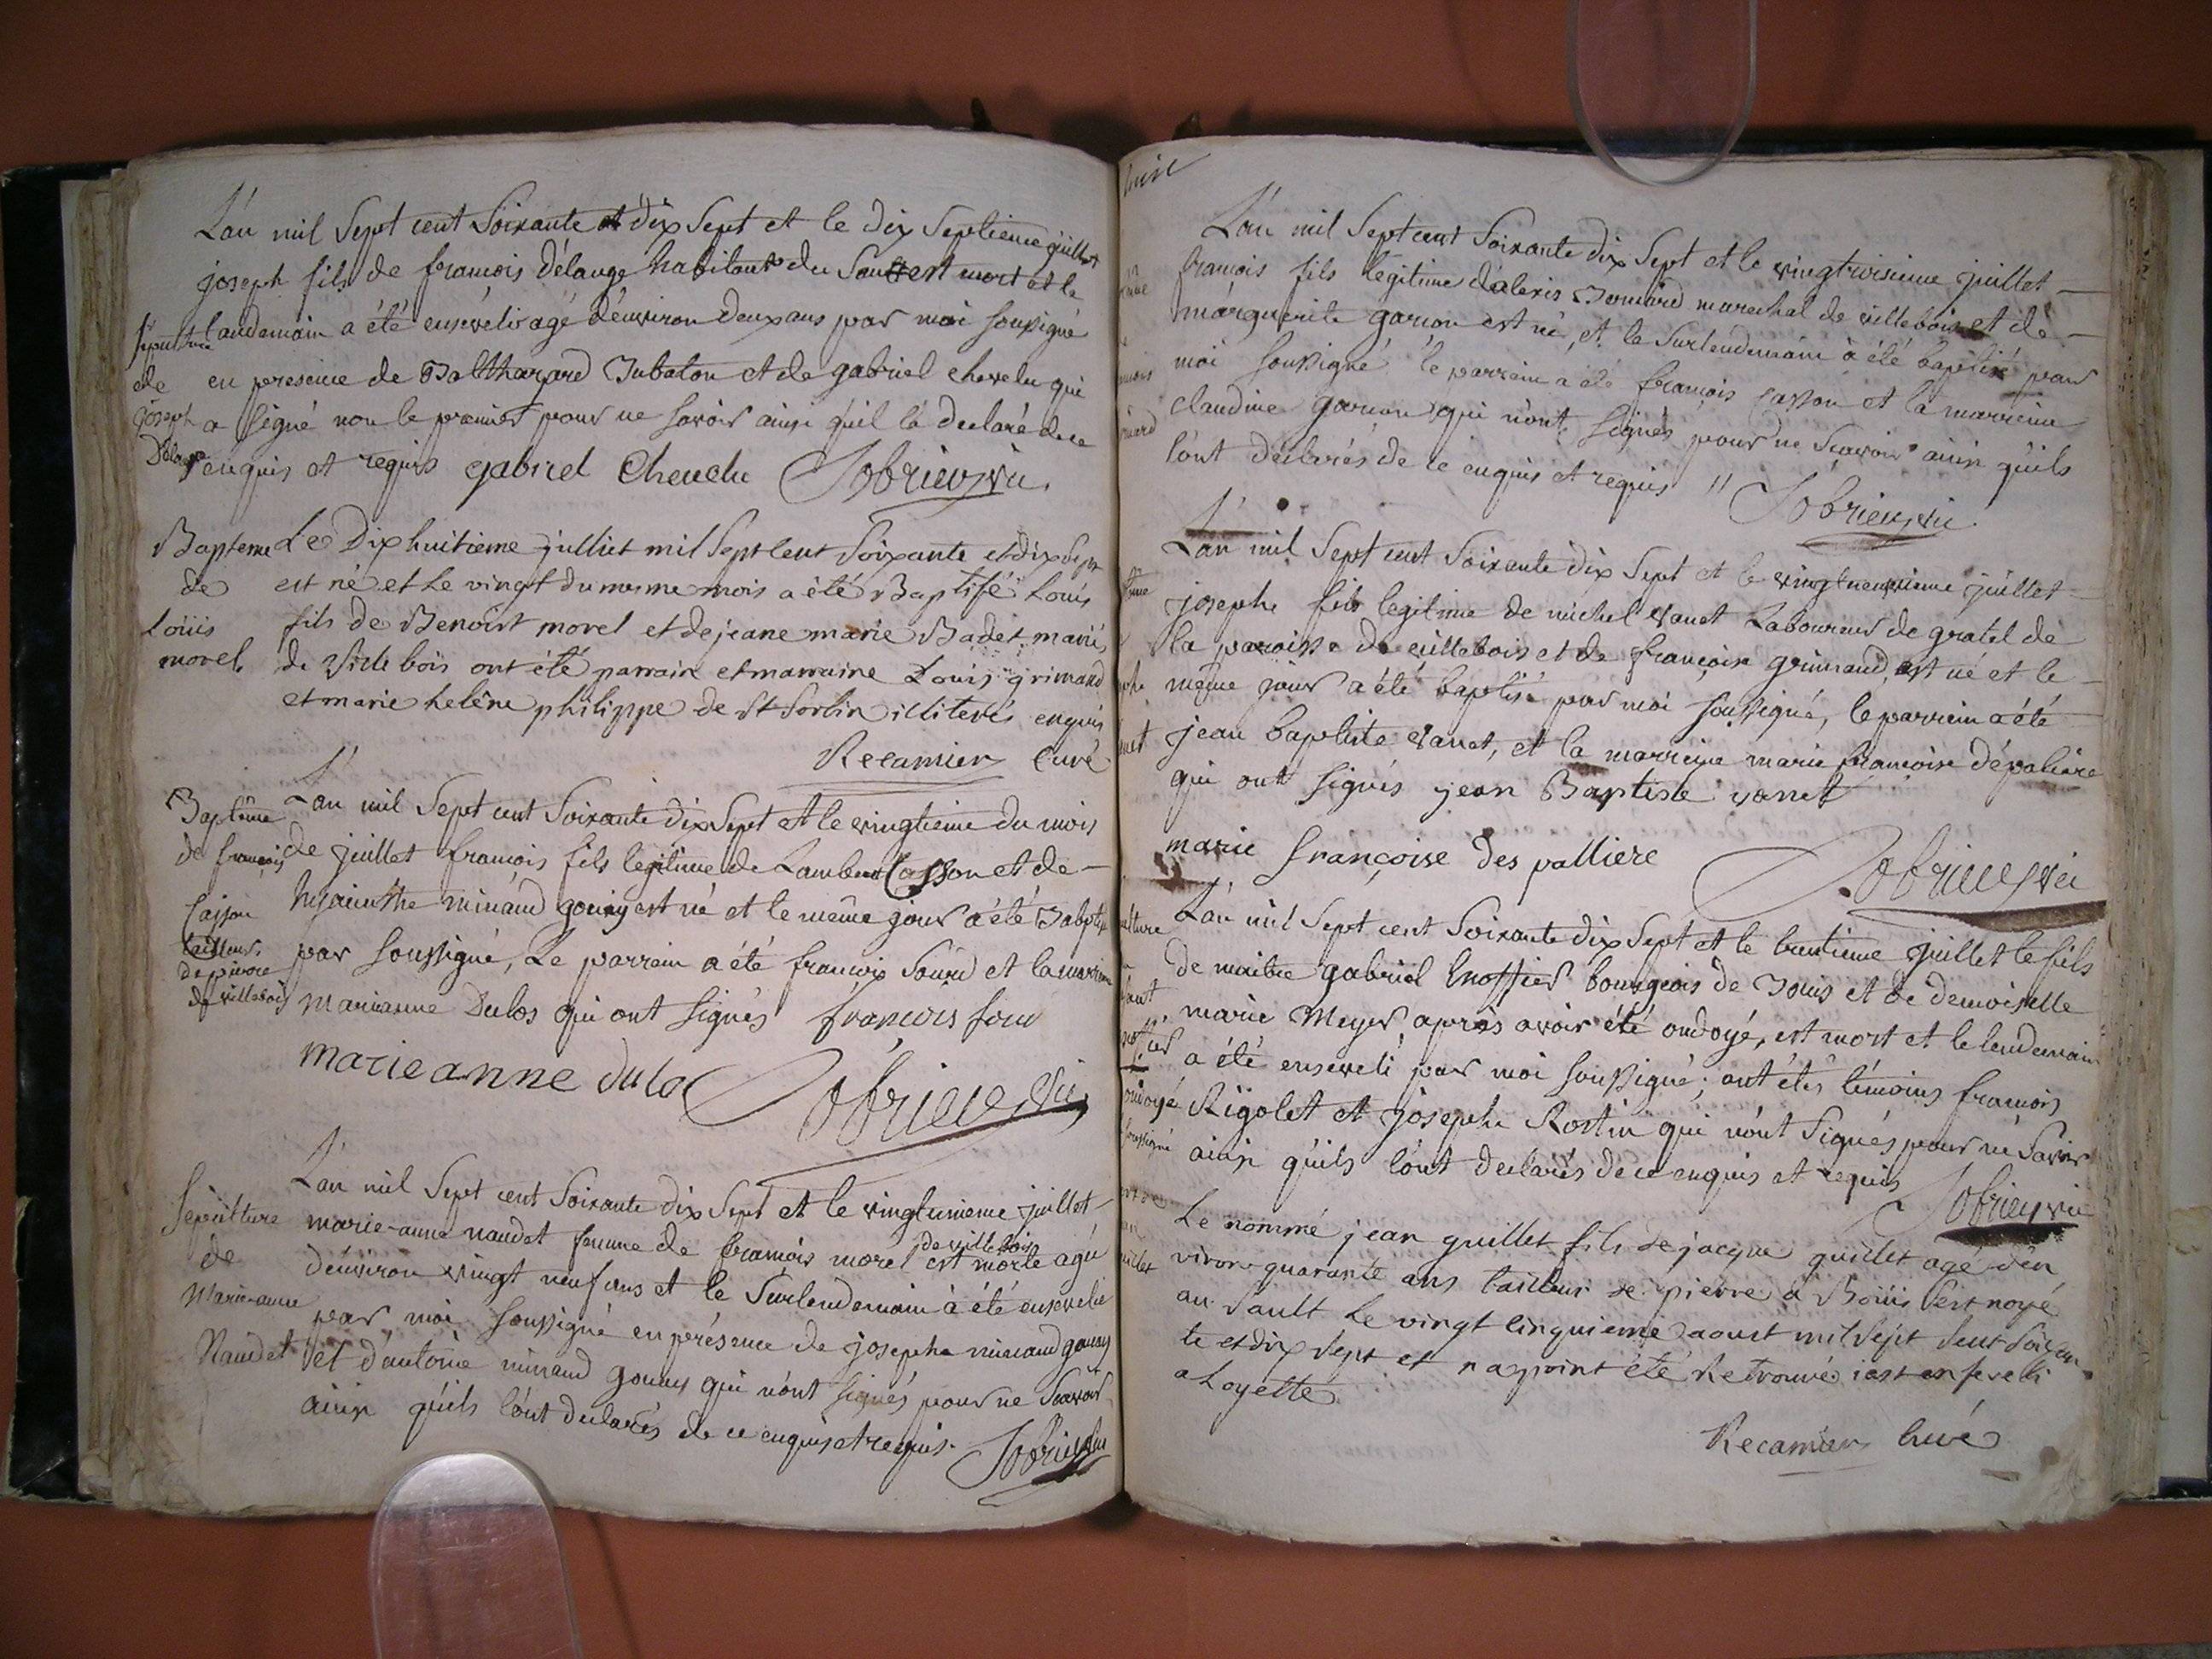 L'an mil Sept cent Soixante et dix Sept et le dix Septieme juillet
joseph fils de francois délauge habitant du Sault est mort et le
landemain a été ensévéli agé d'environ deux ans par moi soussigné
en presence de Balthazard Jubaton et de gabriel chevelu qui
a signé non le premier pour ne savoir ainsi qu'il la declaré de ce
enquis et requis gabriel Cheuelu Sobrieu, vic.
Sepulture
de
joseph
Délauge
Bapteme
de
Loüis
morel
Le Dix huitieme julliet mil Sept Cent Soixante et dix Sept
est né et Le vingt du mesme mois a été Baptisé Louis
fils de Benoist morel et de jeane marie Badet mariés
de Ville bois ont été parrain et marraine Louis grimand
et marie helêne philippe de St Sorlin illiterés enquis
Recamier Curé
Baptême
de francois
Casson
tailleur
de pierre
de villebois
L'an mil Sept cent Soixante dix Sept et le vingtieme du mois
de juillet francois fils legitime de Lambert Casson et de
hyacinthe minand gouny est né et le même jour a été Baptisé
par soussigné, Le parrein a été francois Sourd et la marreine
marianne Dulos qui ont signés françois sour
marieanne dulos Sobrieu, vic,
Sepulture
de
Marie-anne
Naudet
L'an mil Sept cent Soixante dix Sept et le vingtunieme juillet
marie-anne naudet femme de francois morel de villebois est morte agée
d'environ vingt neuf ans et le Surlendemain à été ensevelie
par moi soussigné en présence de josephe minand gouny
et d'antoine minand gouny qui n'ont signés pour ne Scavoir
ainsi qu'ils l'ont declarés de ce enquis et requis. Sobrieu, vic
L'an mil Sept cent Soixante dix Sept et le vingtroisieme juillet
francois fils légitime d'alexis Bernard marechal de villebois et de
marguerite garion est né, et le Surlendemain à été baptisé par
moi soussigné le parrein a été francois Casson et la marreine
claudine garion qui n'ont signés pour ne Scavoir ainsi qu'ils
l'ont déclarés de ce enquis et requis // Sobrieu, vic.
L'an mil Sept cent Soixante dix Sept et le vingtneuvieme juillet
josephe fils legitime de michel vanet Laboureur de gratel de
la paroisse de villebois et de françoise grimand, est né et le
même jour a été baptisé par moi soussigné, le parrein a été
jean baptiste vanet, et la marreine marie francoise dépaliere
qui ont signés jean Baptiste vanet
marie françoise des palliere Sobrieu, vic
L'an mil Sept cent Soixante dix Sept et le trentieme juillet le fils
de maitre gabriel bourgeois de Bouis et de demoiselle
marie Meyer, après avoir été ondoyé, est mort et le lendemain
a été enseveli par moi soussigné; ont étés témoins francois
Rigolet et josephe Rostin qui n'ont Signés pour ne Savoir
ainsi qu'ils l'ont declarés de ce enquis et requis Sobrieu, vic
Le nommé jean guillet fils de jacque guillet agé d'en
viron quarante ans tailleur de pierre à Boüis s'est noyé
au Sault Le vingt Cinquieme aoust mil Sept Cent Soixan
te et dix Sept et n'a point été Retrouvé iest enseveli
a Loyette
Recamier Curé